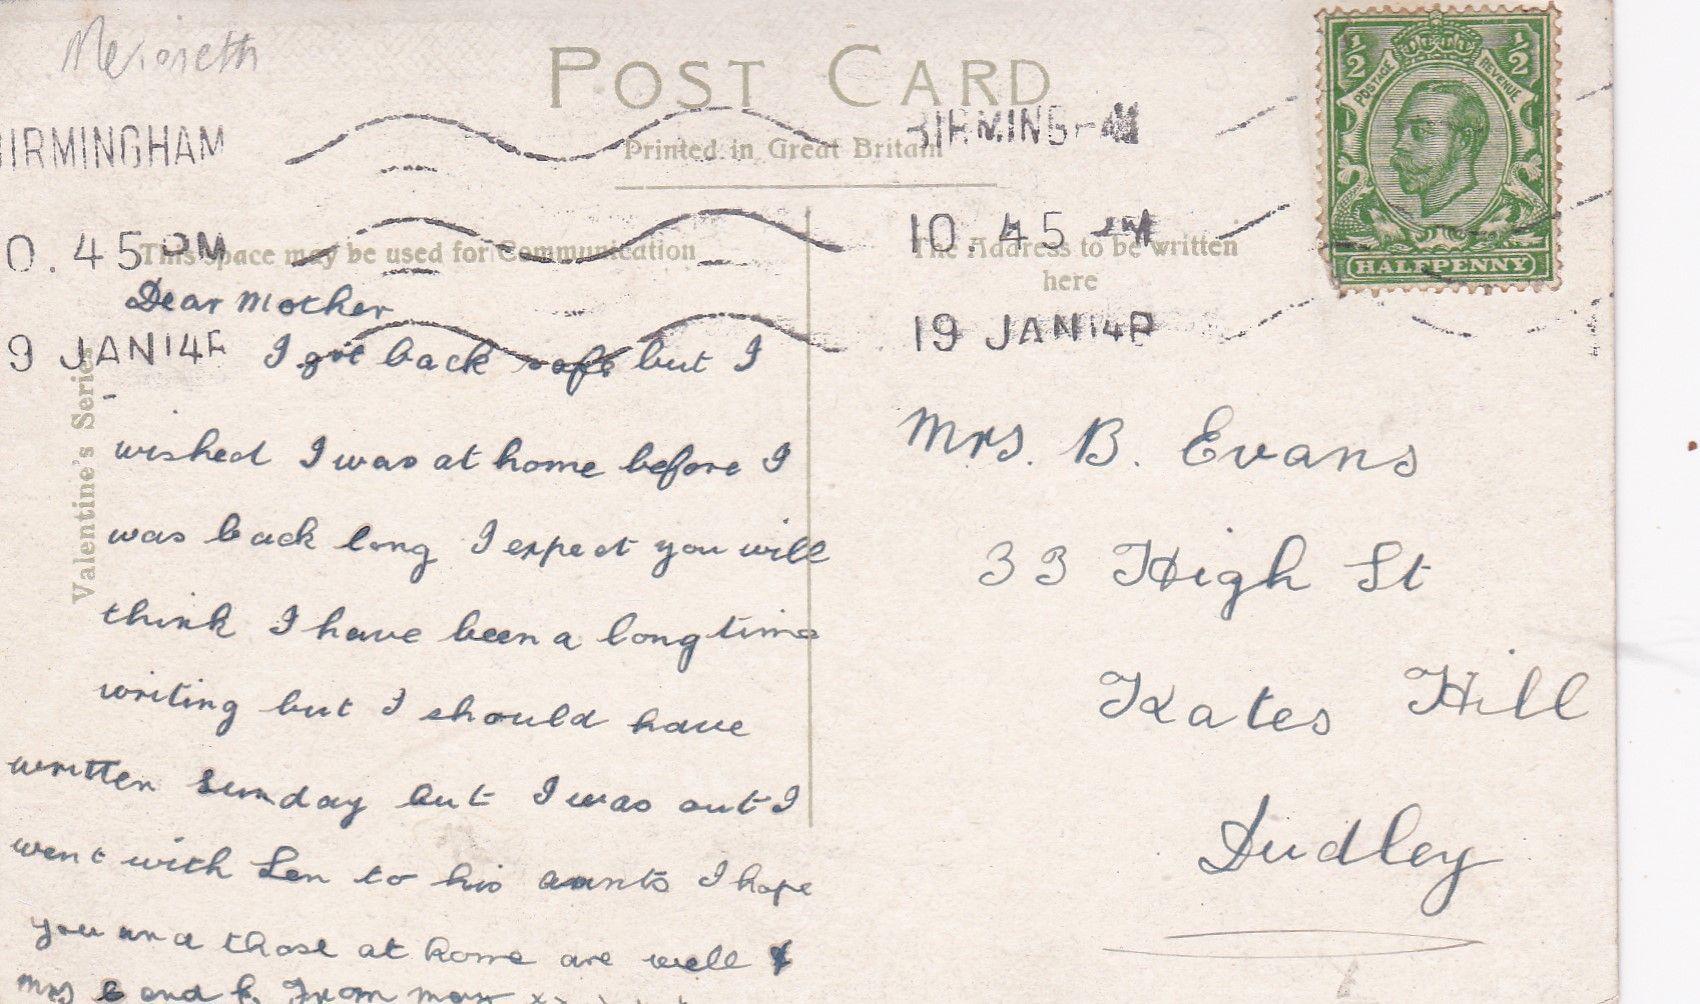 Merioneth
POST CARD
Printed in Great Britain
BIRMINGHAM
10.45 PM
19 JAN 14
BIRMINGHAM
10.45 PM
19 JAN 14
½ ½
POSTAGE REVENUE
HALFPENNY
This space may be used for Communication
The Address to be written
here
Valentine's Series
Dear Mother
I got back safe but I
wished I was at home before I
was back long I expect you will
think I have been a long time
writing but I should have
written Sunday but I was out I
went with Len to his aunts I hope
you and those at home are well &
Mrs and From
Mrs. B. Evans
33 High St
Kates Hill
Dudley